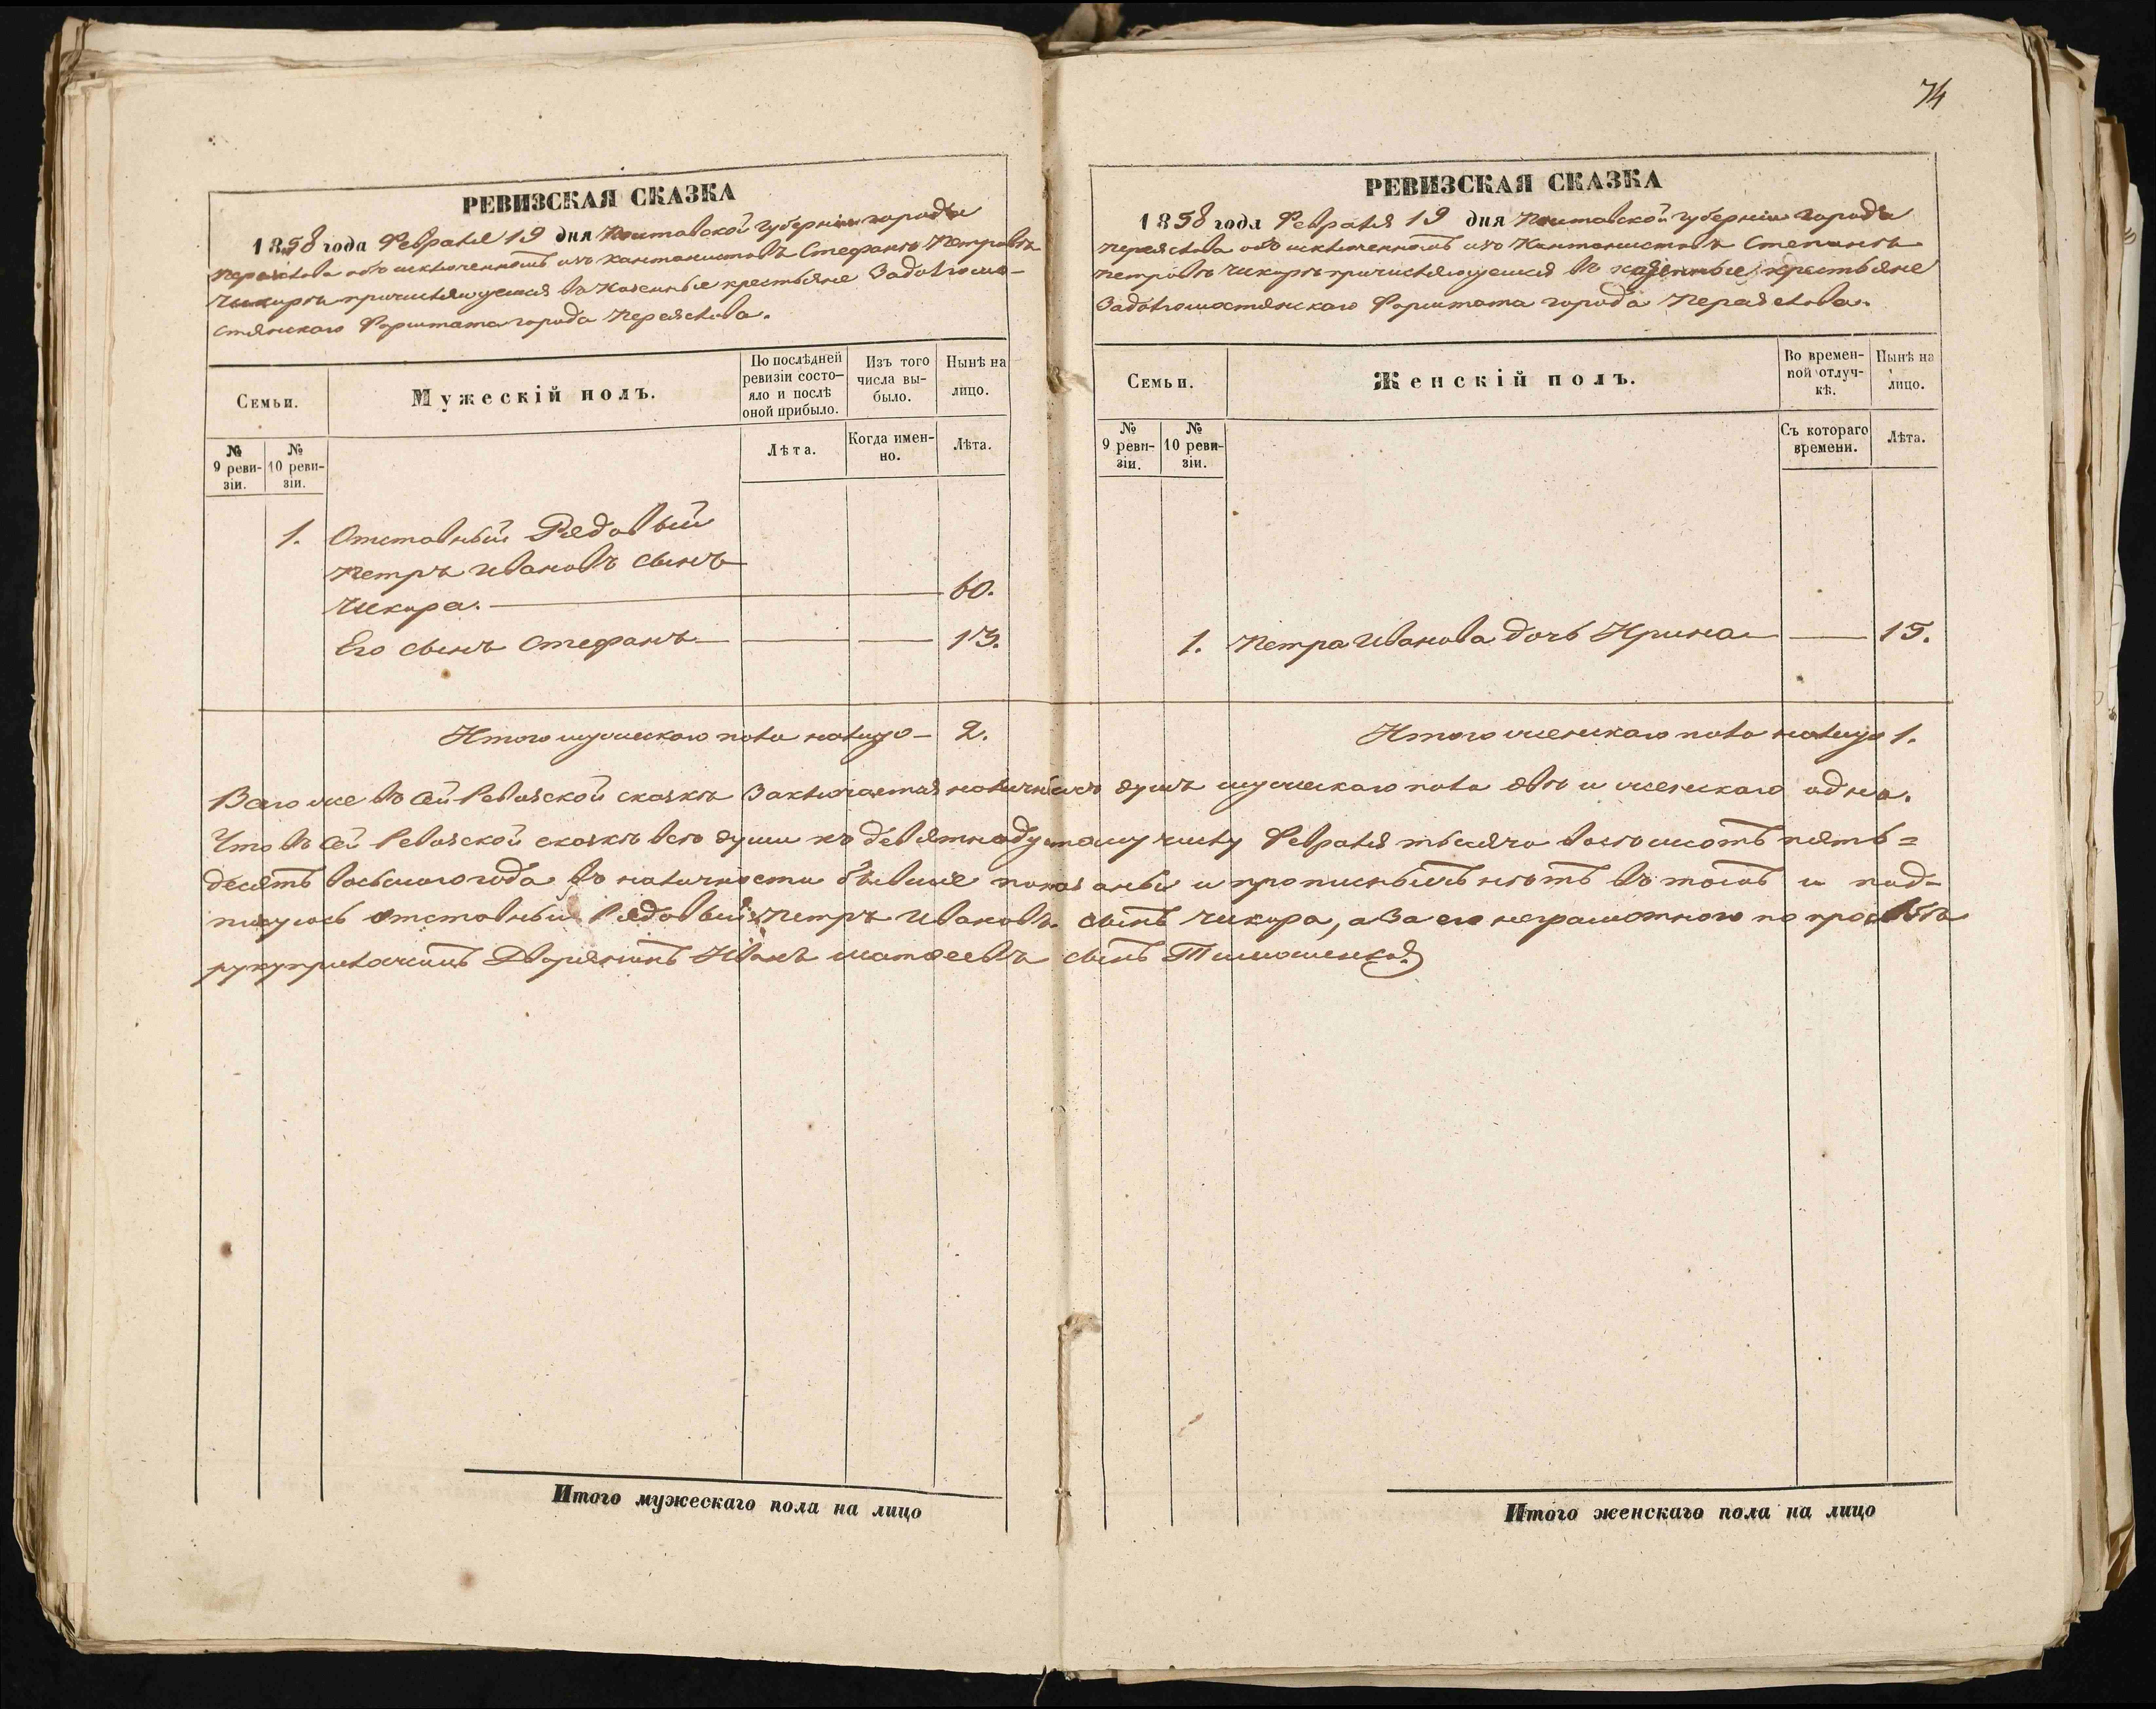 74
РЕВИЗСКАЯ СКАЗКА
1858 года Февраля 19 дня Полтавской Губерніи города
Переяслова объ исключенномъ изъ кантонистовъ Стефанѣ Петровѣ
Чикирѣ причисляющемся въ казенные крестьяне Задолгомо-
стянскаго Форштата города Переяслова.
Семьи.
Мужескій полъ.
По послѣдней ревизіи состо-яло и послѣ оной прибыло.
Изъ того числа вы-было.
Нынѣ на лицо.
№ 9 реви-зіи.
№ 10 реви-зіи.
Лѣта.
Когда имен-но.
Лѣта.
1. Отставный Рядовый
Петръ Ивановъ сынъ
Чикира. 60.
Его сынъ Стефанъ 13.
Итого мужескаго пола налицо 2.
РЕВИЗСКАЯ СКАЗКА
1858 года Февраля 19 дня Полтавской губерніи города
Переяслова объ исключенномъ изъ Кантонистовъ Степанѣ
Петровѣ Чикирѣ причисляющемся въ казенные крестьяне
Задолгомостянскаго Форштата города Переяслова.
Семьи.
Женскій полъ.
Во времен-ной отлуч-кѣ.
Нынѣ на лицо.
№ 9 реви-зіи.
№ 10 реви-зіи.
Съ котораго времени.
Лѣта.
1. Петра Иванова дочь Ирина 15.
Итого женскаго пола налицо 1.
Всего же въ сей Ревизской сказкѣ Заключается наличныхъ душъ мужескаго пола двѣ и женскаго одна.
Что въ сей Ревизской сказкѣ всѣ души къ девятнадцатому числу Февраля тысяча восемьсотъ пять=
десятъ восьмого года въ наличности бывшие показаны и прописныхъ нѣтъ въ томъ и под-
писуюсь отставный Рядовый Петръ Ивановъ сынъ Чикира, а За его неграмотного по прозьбѣ
руку приложилъ Дворянинъ Иванъ Матвеевъ сынъ Тимошенко
Итого мужескаго пола на лицо
Итого женскаго пола на лицо